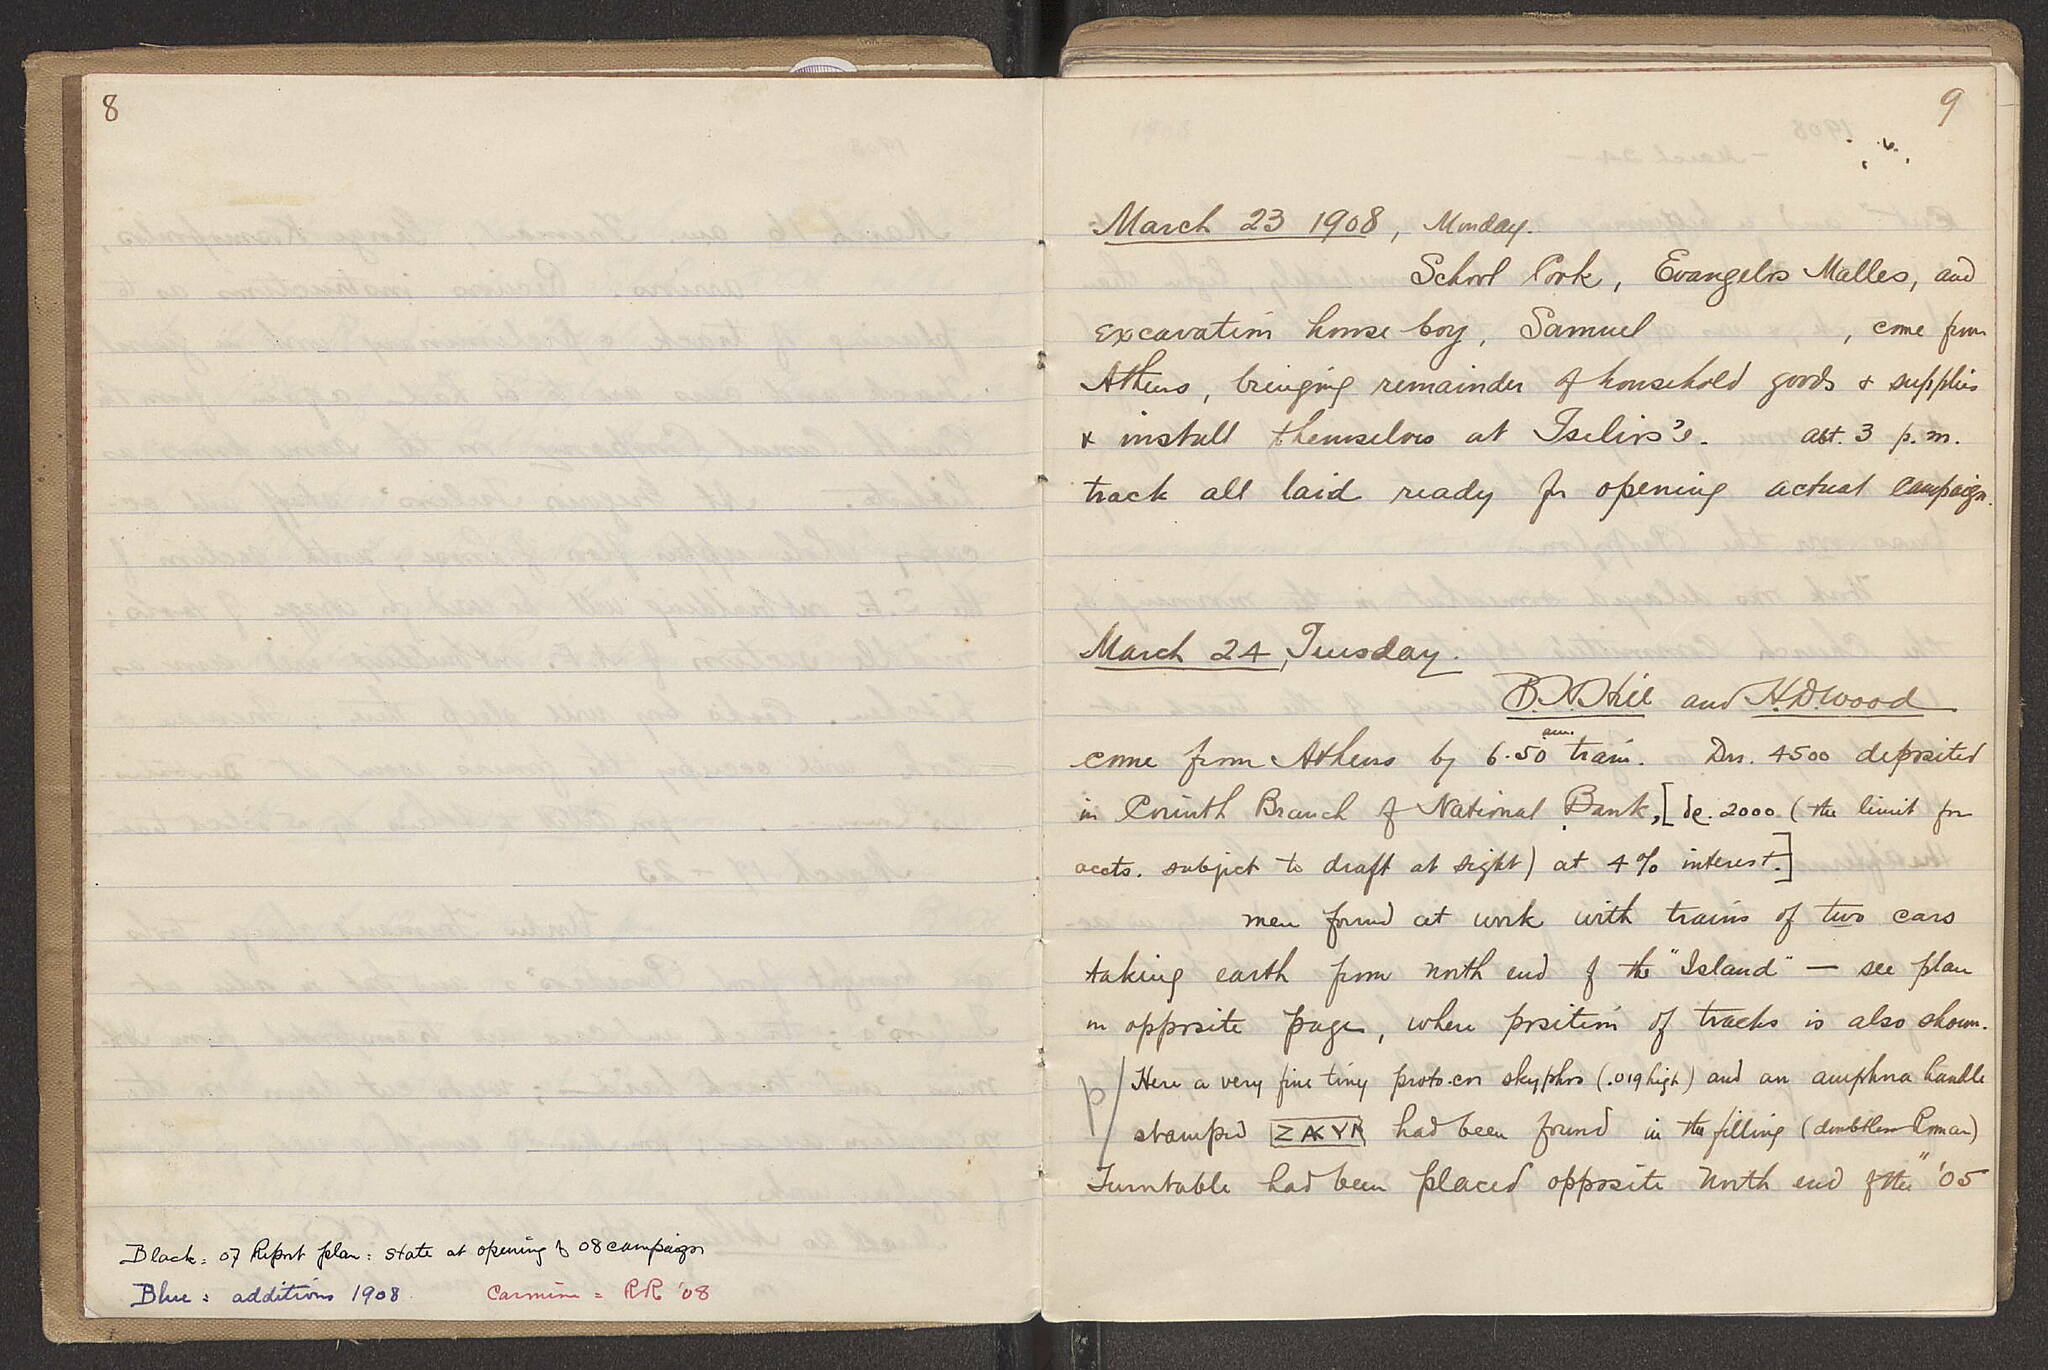 8
Black: 07 Report plan: state at opening of 08 campaign
Blue: additions 1908. Carmine = RR '08
9
March 23 1908, Monday.
School Cook, Evangelos Malles, and
excavation house boy, Samuel , come from
Athens, bringing remainder of household goods & supplies
& install themselves at Tselios's. abt. 3 p.m.
track all laid ready for opening actual campaign.
March 24, Tuesday.
B.H. Hill and H.D. Wood
come from Athens by 6.50 am. train. Drs. 4500 deposited
in Corinth Branch of National Bank, [ 2000 (the limit for
accts. subject to draft at sight) at 4% interest.]
men found at work with trains of two cars
taking earth from north end of the "Island" — see plan
on opposite page, where position of tracks is also shown.
Here a very fine tiny proto-cor skyphos (.019 high) and an amphora handle
stamped had been found in the filling (doubtless Roman)
Turntable had been placed opposite north end of the "'05